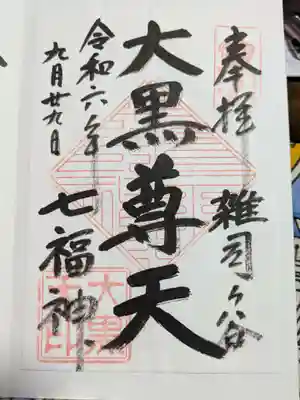 奉拝 雑司ヶ谷
大黒尊天
七福神
令和六年
九月廿九日
大黒